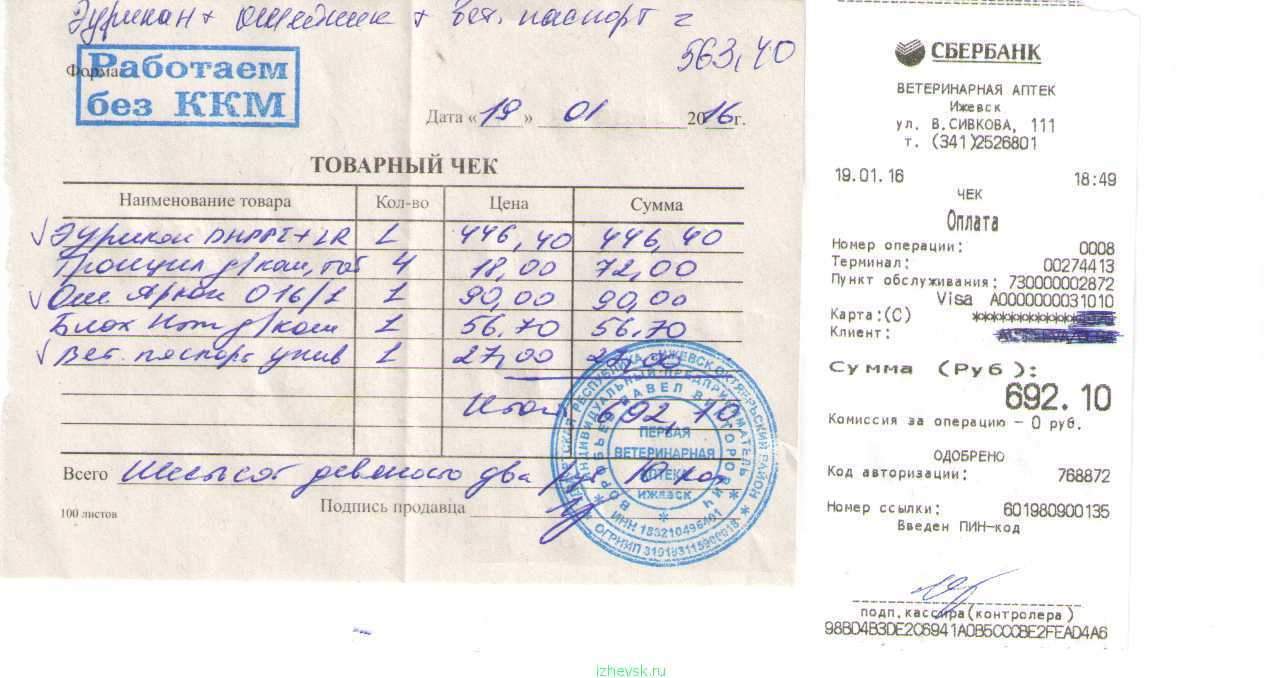 Эурикан + ошейник + вет. паспорт =
563,40
Форма
Работаем
без ККМ
Дата «19» 01 2016г.
ТОВАРНЫЙ ЧЕК
Наименование товара Кол-во Цена Сумма
Эурикан DHPPI+LR 1 446,40 446,40
д/кош, 4 18,00 72,00
Ош 016/1 1 90,00 90,00
Блох Нет д/кош 1 56.70 56.70
Вет. паспорт унив 1 27,00 27,00
Итого 692,10
Всего Шестьсот девяносто два руб 10 коп
Подпись продавца
100 листов
ИНДИВИДУАЛЬНЫЙ ПРЕДПРИНИМАТЕЛЬ
ПЕРВАЯ
ВЕТЕРИНАРНАЯ
АПТЕКА
ИЖЕВСК
СБЕРБАНК
ВЕТЕРИНАРНАЯ АПТЕК
Ижевск
ул. В.СИВКОВА, 111
т. (341)2526801
19.01.16 18:49
ЧЕК
Оплата
Номер операции: 0008
Терминал: 00274413
Пункт обслуживания: 730000002872
Visa A0000000031010
Карта:(C) ************
Клиент:
Сумма (Руб):
692.10
Комиссия за операцию – 0 руб.
ОДОБРЕНО
Код авторизации: 768872
Номер ссылки: 601980900135
Введен ПИН-код
подп.кассира(контролера)
98BD4B3DE2C6941A0B5CCCBE2FEAD4A6
izhevsk.ru